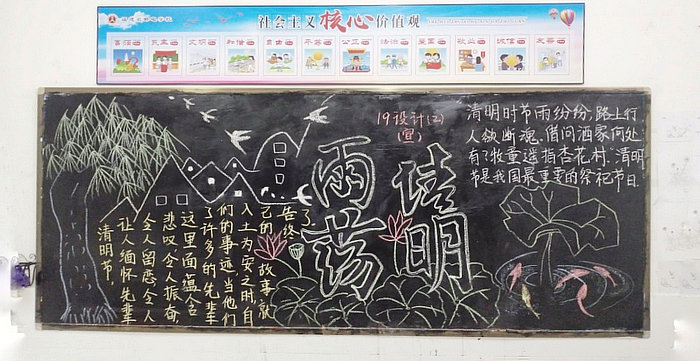 社会主义核心价值观
富强 民主 文明 和谐 自由 平等 公正 法治 爱国 敬业 诚信 友善
19设计(2)
(宣)
清明
雨荡
清明时节雨纷纷,路上行
人欲断魂。借问酒家何处
有?牧童遥指杏花村。清明
节是我国最重要的祭祀节日.
清明节,
让人缅怀先辈
令人留恋令人
悲叹令人振奋
这里面蕴含
了许多的先辈
们的事迹,当他们
入土为安之时,自
己的故事就
告终
了